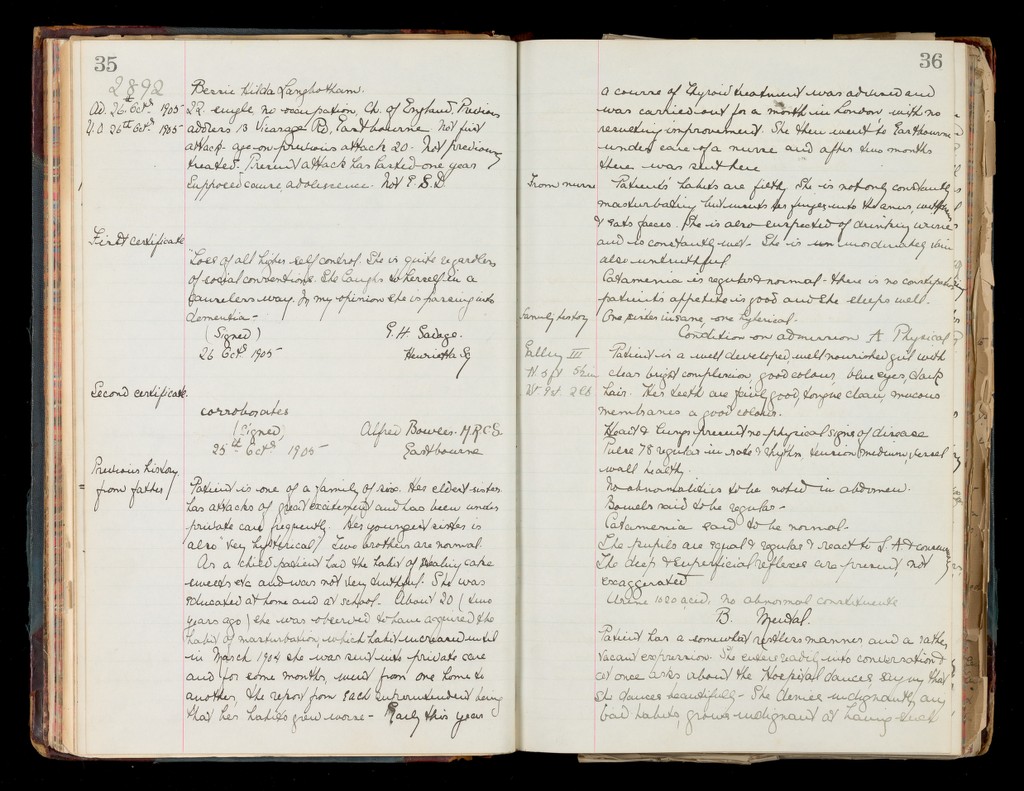 35
2892
Bessie Hilda Langbotham.
Ad. 26th Octr 1905
22 single, no occupation, Ch. of England. Previous
U.O 25th Octr 1905
address 13 Vicarage Rd, Eastbourne Not first
attack - age on previous attack 20 - Not previously
treated - Present attack has lasted one year
Supposed cause, adolescence. Not E.S.D.
First certificate
"Loss of all higher self control. She is quite regardless
of social conventions. She laughs to herself in a
causeless way. In my opinion she is passing into
dementia -
(Signed) G. H. Savage.
26 Octr 1905 Henrietta St
Second certificate
corroborates
(Signed) Alfred Bowles. MRCS.
25th Octr 1905 Eastbourne
Previous history
from father
Patient is one of a family of six. Her eldest sister
has attacks of great excitement and has been under
private care frequently. Her youngest sister is
also "very hysterical". Two brothers are normal.
As a child patient had the habit of stealing cake
sweets etc and was not very truthful. She was
educated at home and at school. About 20 (two
years ago) she was observed to have acquired the
habit of masturbation, which habit increased until
in March 1904 she was sent into private care
and for some months, went from one home to
another, the report from each superintendent being
that her habits grew worse - Early this year
36
a course of Thyroid treatment was advised and
was carried out for a month in London with no
resulting improvement. She then went to Eastbourne
under care of a nurse and after two months
there was sent here
From nurse
Patient's habits are filthy. She is not only constantly
masturbating but inserts her finger into the anus,
& eats faeces. She is also suspected of drinking urine
and is constantly wet - She is immoderately vain
also untruthful
Catamenia is regular & normal - there is no constipation
patient's appetite is good and she sleeps well.
Family history
One sister insane, one hysterical.
Condition on admission A Physical
Gallery III
Patient is a well developed, well nourished girl with
H. 5 ft 5
clear bright complexion, good colour, blue eyes, dark
Wt. 9st. 2lb
hair. Her teeth are fairly good, tongue clean, mucous
membranes a good colour.
Heart & Lungs present no physical signs of disease
Pulse 78 regular in rate & rhythm, tension medium, vessel
wall healthy.
No abnormalities to be noted in abdomen.
Bowels said to be regular -
Catamenia said to be normal -
The pupils are equal & regular & react to L. A &
The deep & superficial reflexes are present, not
exaggerated
Urine 1020 acid, no abnormal constituents
B. Mental.
Patient has a somewhat restless manner and a rather
vacant expression. She enters readily into conversation &
at once asks about the Hospital dances saying that
she dances beautifully - She denies indignantly any
bad habits, grows indignant at having